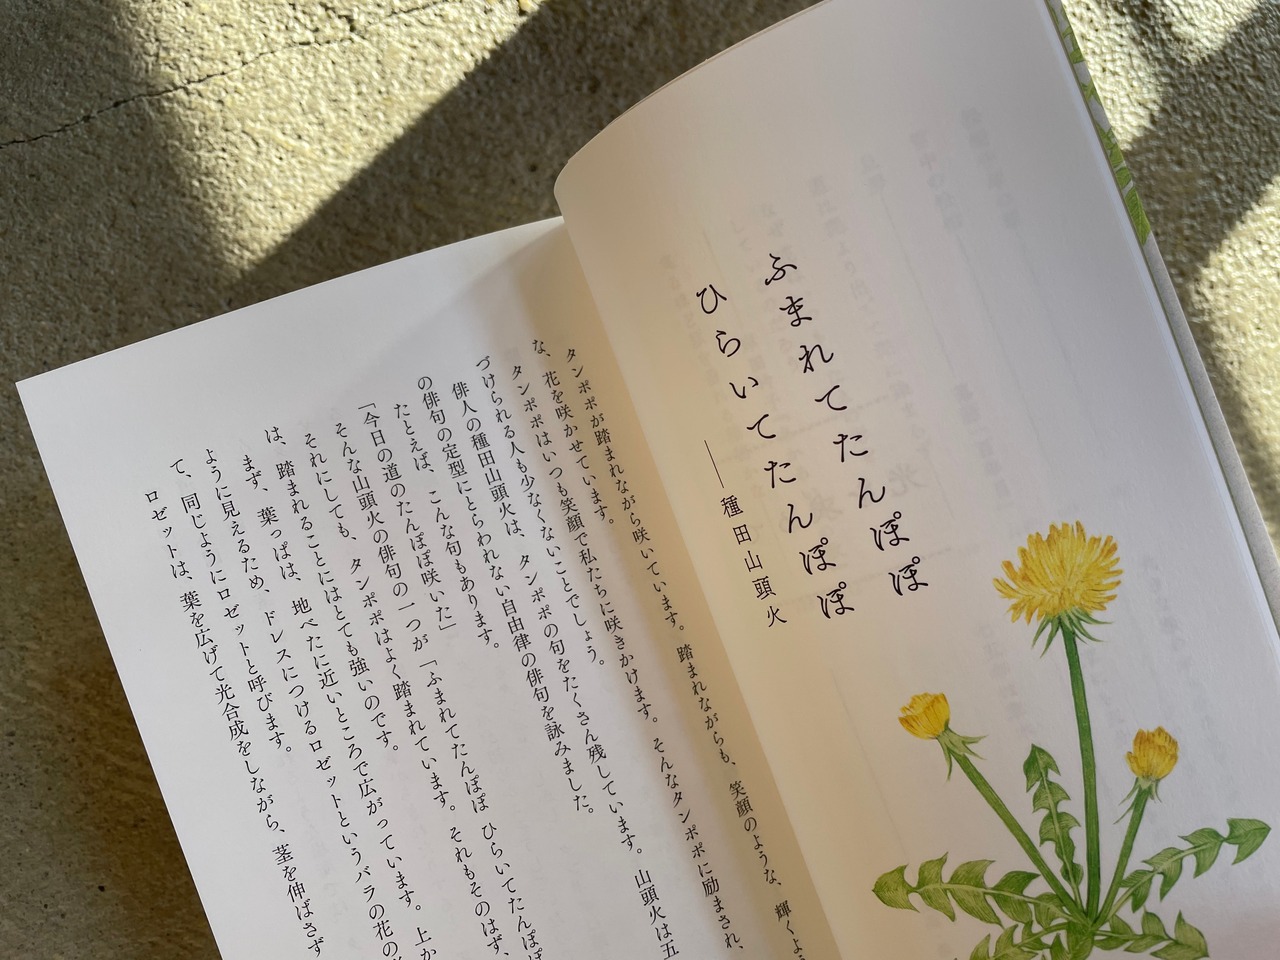 ふまれてたんぽぽ
ひらいてたんぽぽ
──種田山頭火
タンポポが踏まれながら咲いています。踏まれながらも、笑顔のような、輝くよう
な、花を咲かせています。
タンポポはいつも笑顔で私たちに咲きかけます。そんなタンポポに励まされ、
づけられる人も少なくないことでしょう。
俳人の種田山頭火は、タンポポの句をたくさん残しています。山頭火は五
の俳句の定型にとらわれない自由律の俳句を詠みました。
たとえば、こんな句もあります。
「今日の道のたんぽぽ咲いた」
そんな山頭火の俳句の一つが「ふまれてたんぽぽ ひらいてたんぽぽ
それにしても、タンポポはよく踏まれています。それもそのはず、
は、踏まれることにはとても強いのです。
まず、葉っぱは、地べたに近いところで広がっています。上か
ように見えるため、ドレスにつけるロゼットというバラの花の
て、同じようにロゼットと呼びます。
ロゼットは、葉を広げて光合成をしながら、茎を伸ばさず